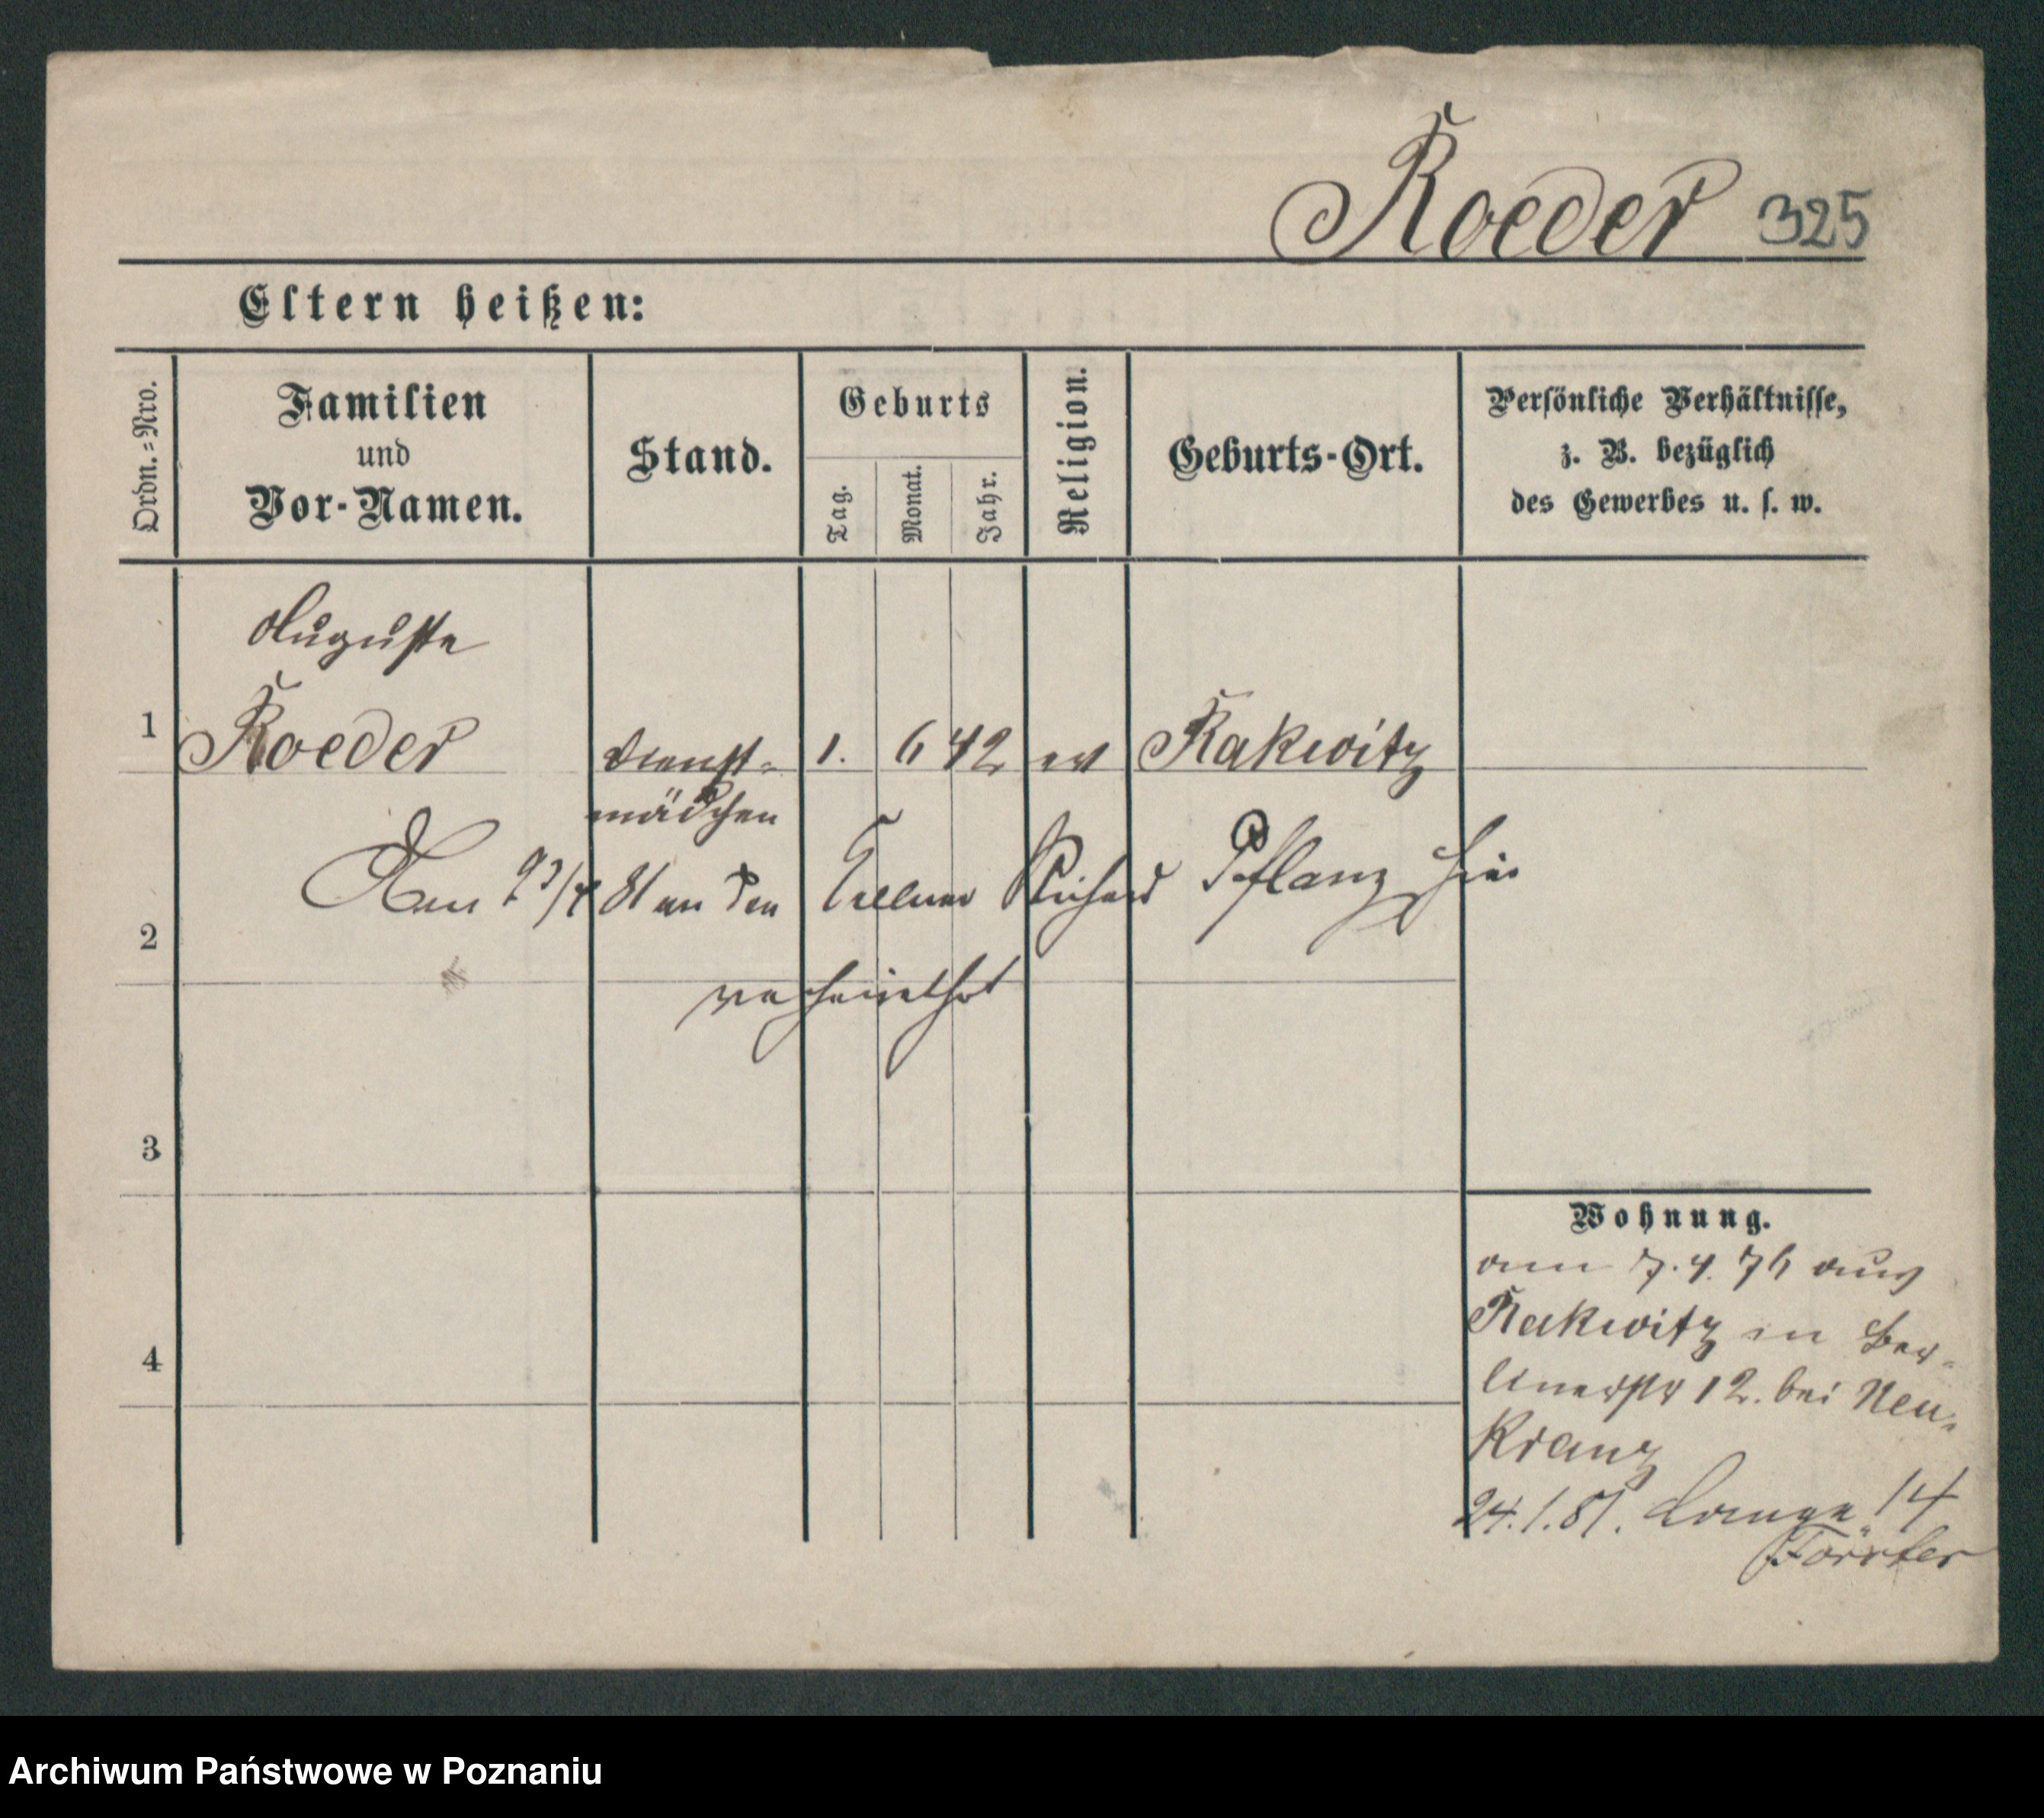 Roeder 325
Eltern heißen:
Ordn.=Nro.
Familien
und
Vor-Namen.
Stand.
Geburts
Tag.
Monat.
Jahr.
Religion.
Geburts-Ort.
Persönliche Verhältnisse,
z. B. bezüglich
des Gewerbes u. s. w.
Auguste
1 Roeder Dienst- 1. 6 42 ev Rakwitz
mädchen
Am /4 81 an den Kellner Richard Pflanz hier
2
verheirathet
3
4
Wohnung.
am 7.4.76 aus
Rakwitz in Ber-
linerstr 12. bei Neu-
Kranz
24.1.81. Lange 14
Förster
Archiwum Państwowe w Poznaniu